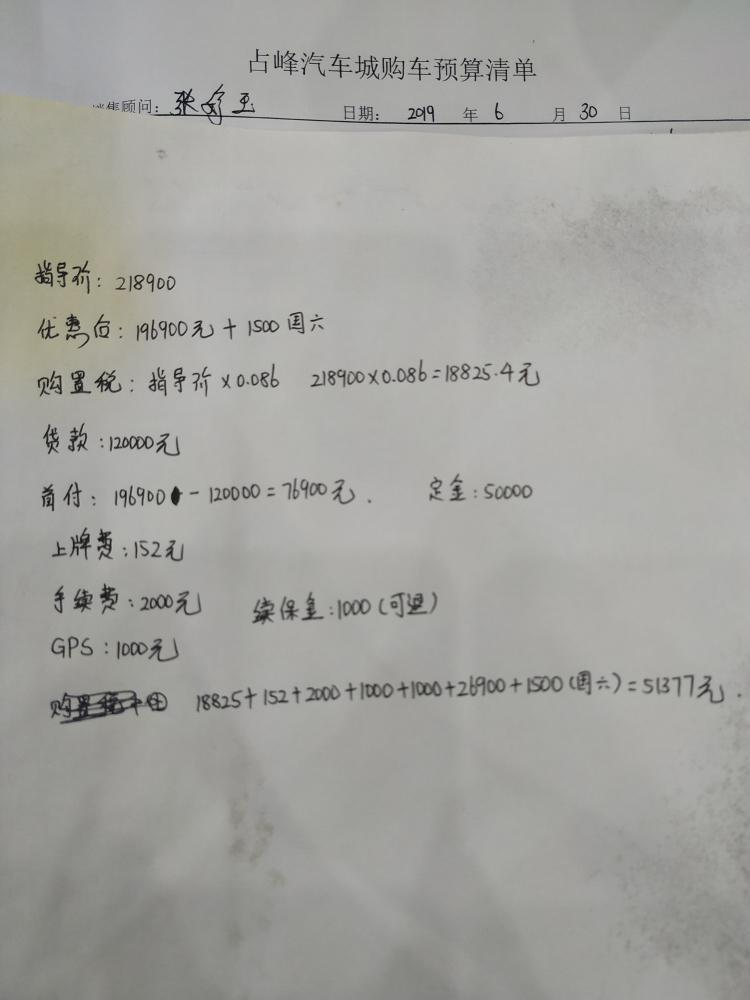 占峰汽车城购车预算清单
销售顾问: 张 玉 日期: 2019 年 6 月 30 日
指导价: 218900
优惠后: 196900元 + 1500 国六
购置税: 指导价 × 0.086 218900×0.086=18825.4元
贷款: 120000元
首付: 196900 - 120000 = 76900元. 定金: 50000
上牌费: 152元
手续费: 2000元 续保金: 1000 (可退)
GPS: 1000元
18825+152+2000+1000+1000+26900+1500(国六)=51377元.